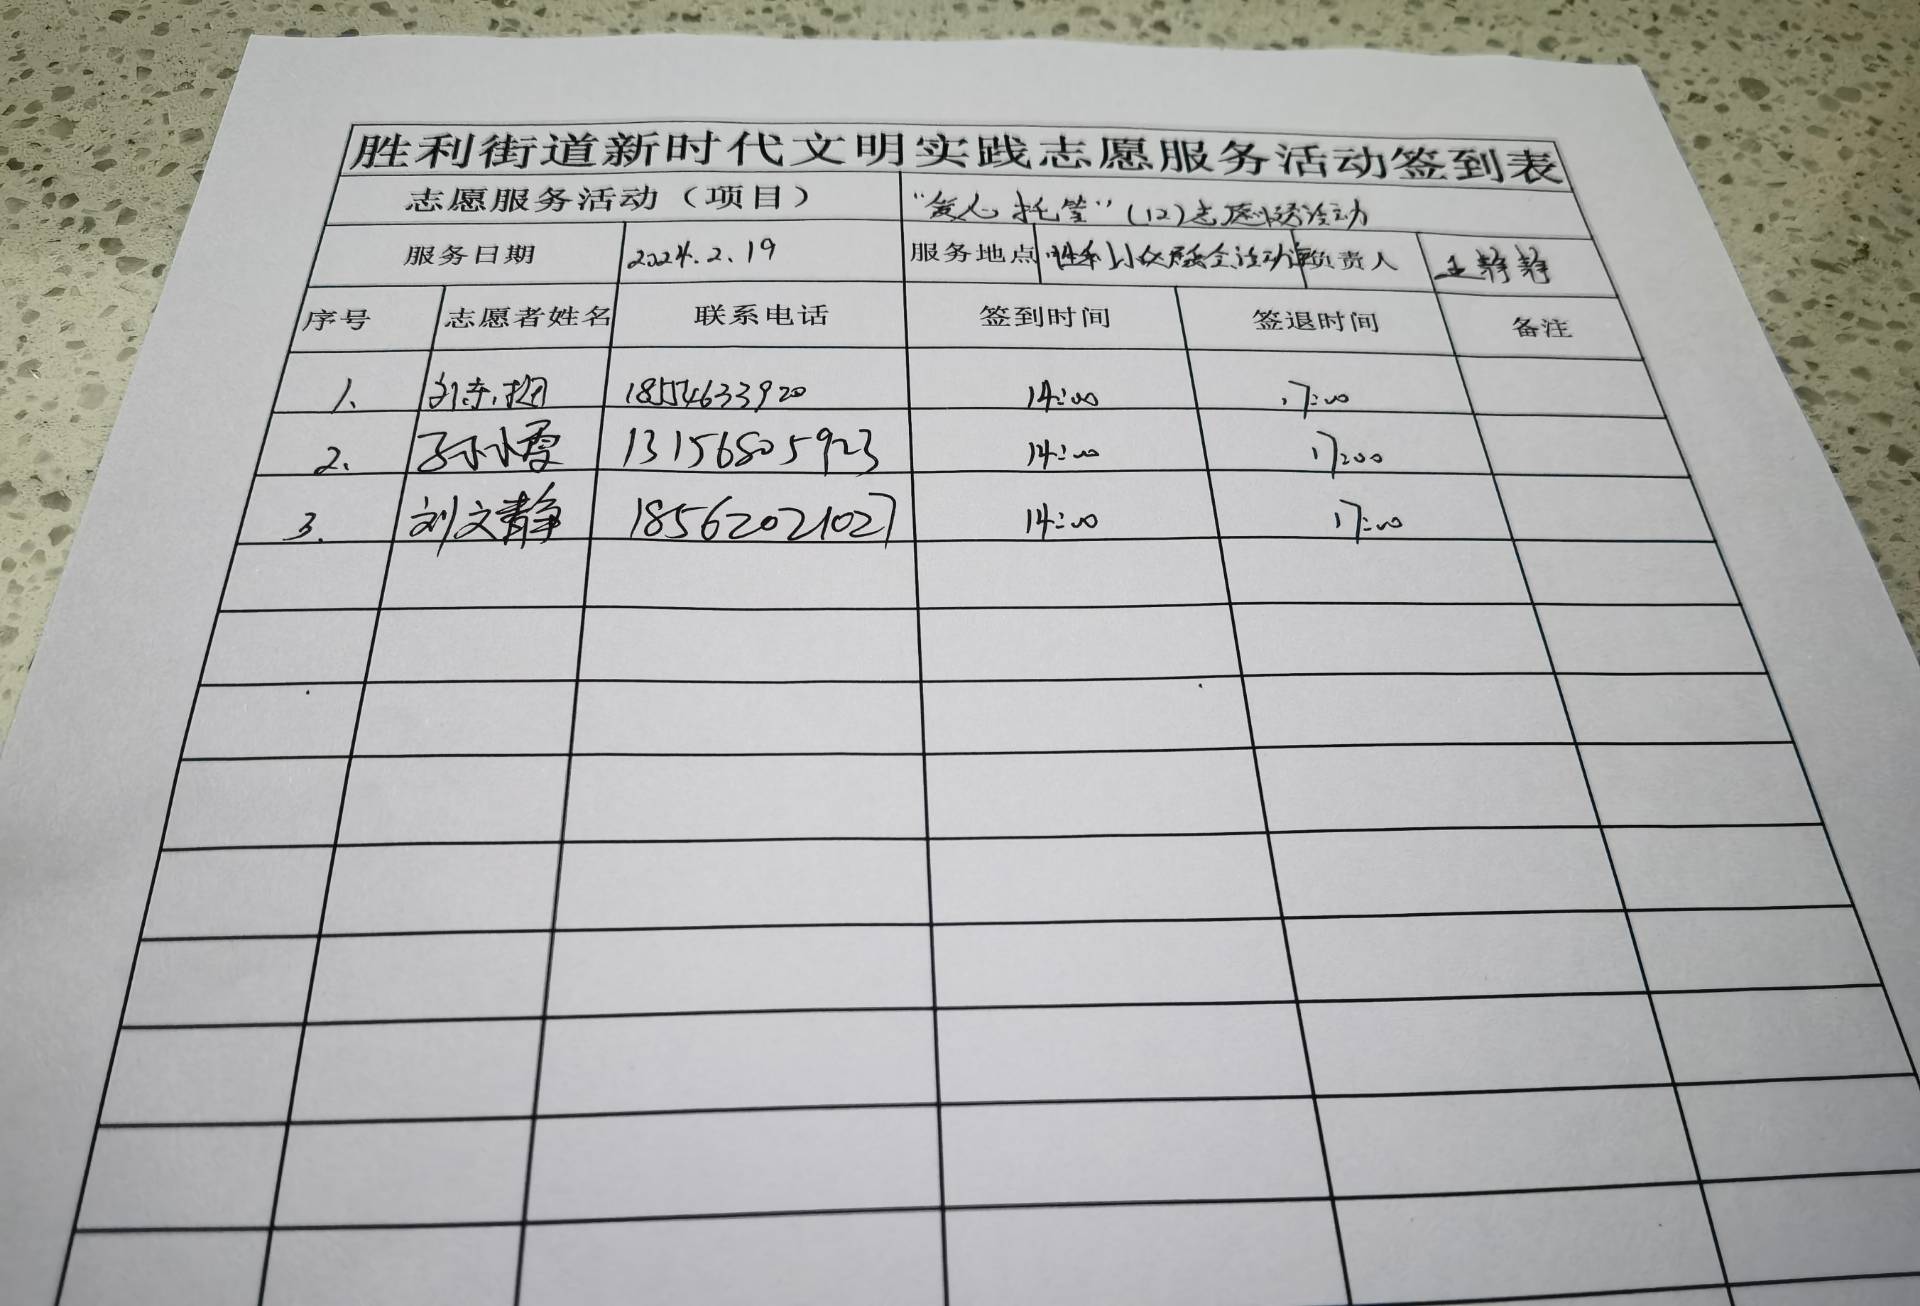 胜利街道新时代文明实践志愿服务活动签到表
志愿服务活动（项目） 托管”（12）志愿服务活动
服务日期 2024.2.19 服务地点 负责人 王静静
序号 志愿者姓名 联系电话 签到时间 签退时间 备注
1. 14:00 17:00
2. 孙小霞 13156805923 14:00 17:00
3. 刘文静 18562021027 14:00 17:00